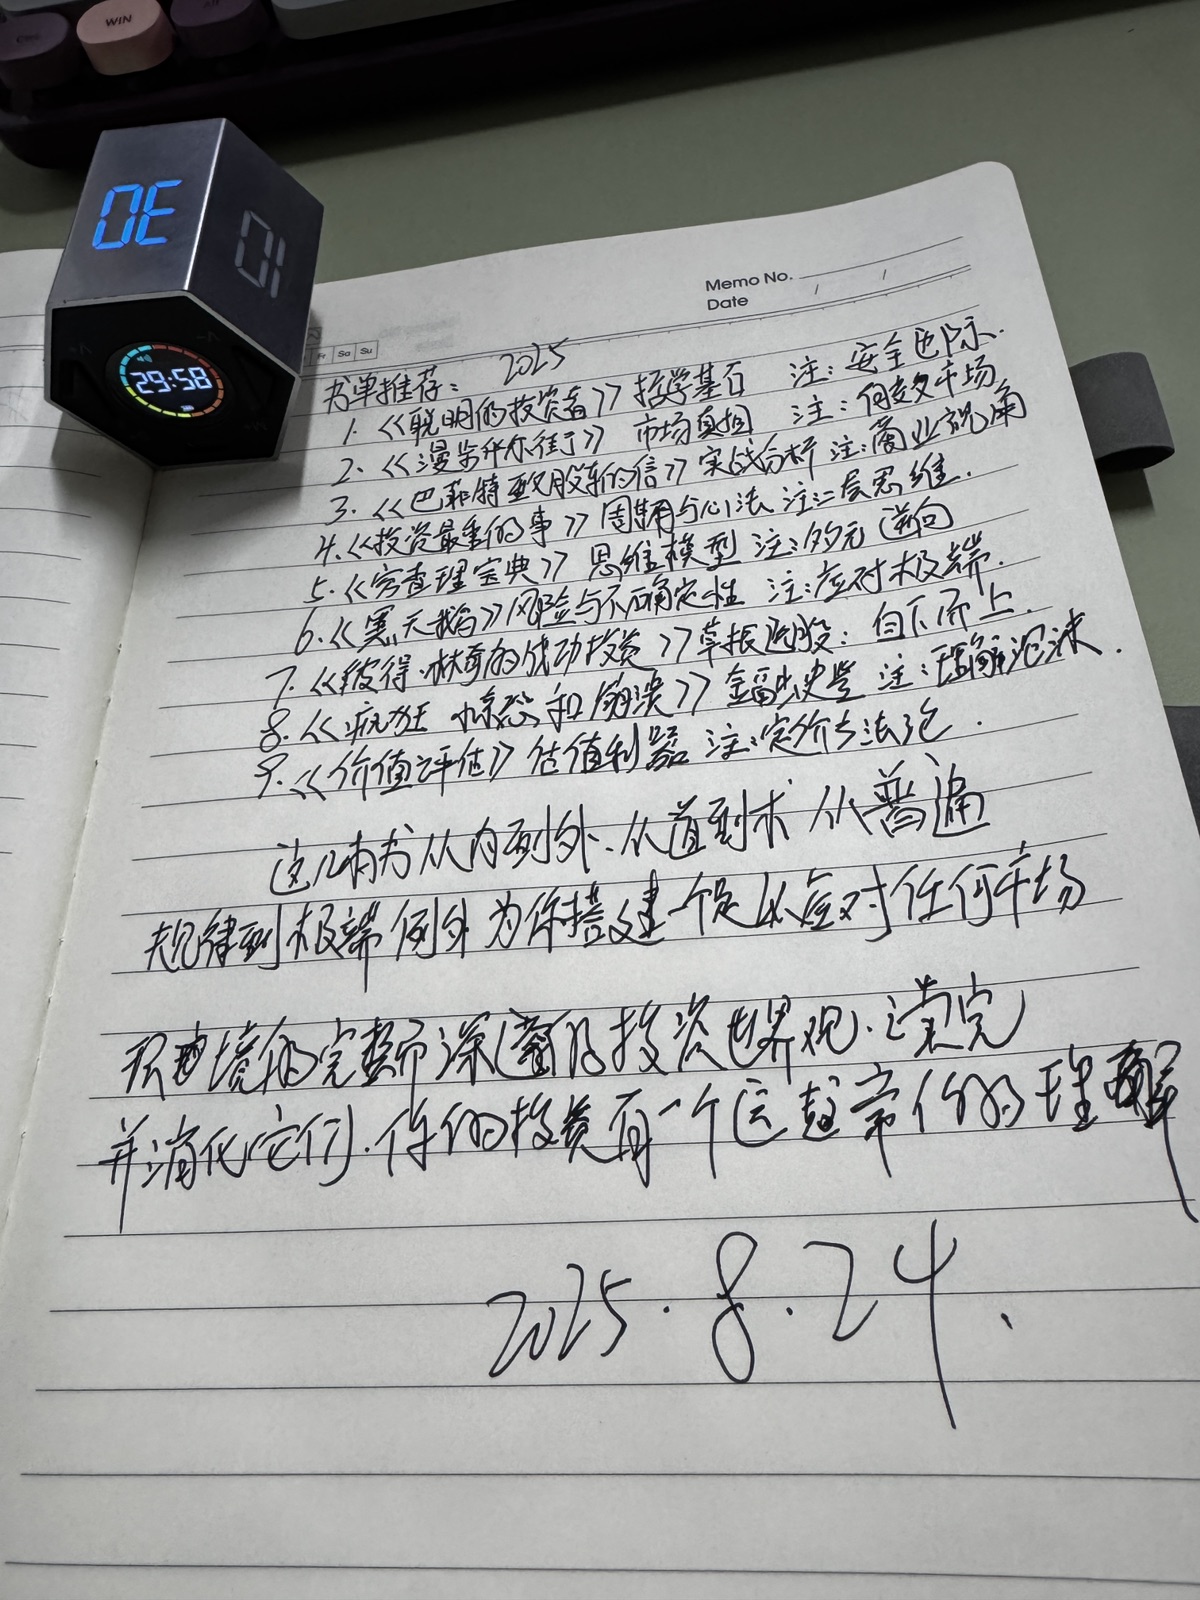 WIN
30
10
29:58
Memo No.
Date / /
Fr Sa Su
书单推荐： 2025
1. 《聪明的投资者》 投学基石 注：安全边际.
2. 《漫步华尔街》 市场真相 注：有效市场
3. 《巴菲特致股东的信》 实战分析 注：商业视角
4. 《投资最重要的事》 周期与心法 注：二层思维.
5. 《穷查理宝典》 思维模型 注：多元 逆向
6. 《黑天鹅》 风险与不确定性 注：应对极端.
7. 《彼得·林奇的成功投资》 草根选股：自下而上.
8. 《疯狂 惊恐和崩溃》 金融史鉴 注：理解泡沫.
9. 《价值评估》 估值利器 注：定价方法论.
这几本书从内到外、从道到术 从普遍
规律到极端例外 为你搭建一个足以应对任何市场
环境的完整而深邃的投资世界观. 读完
并消化它们. 你的投资有一个远超常人的理解
2025.8.24.